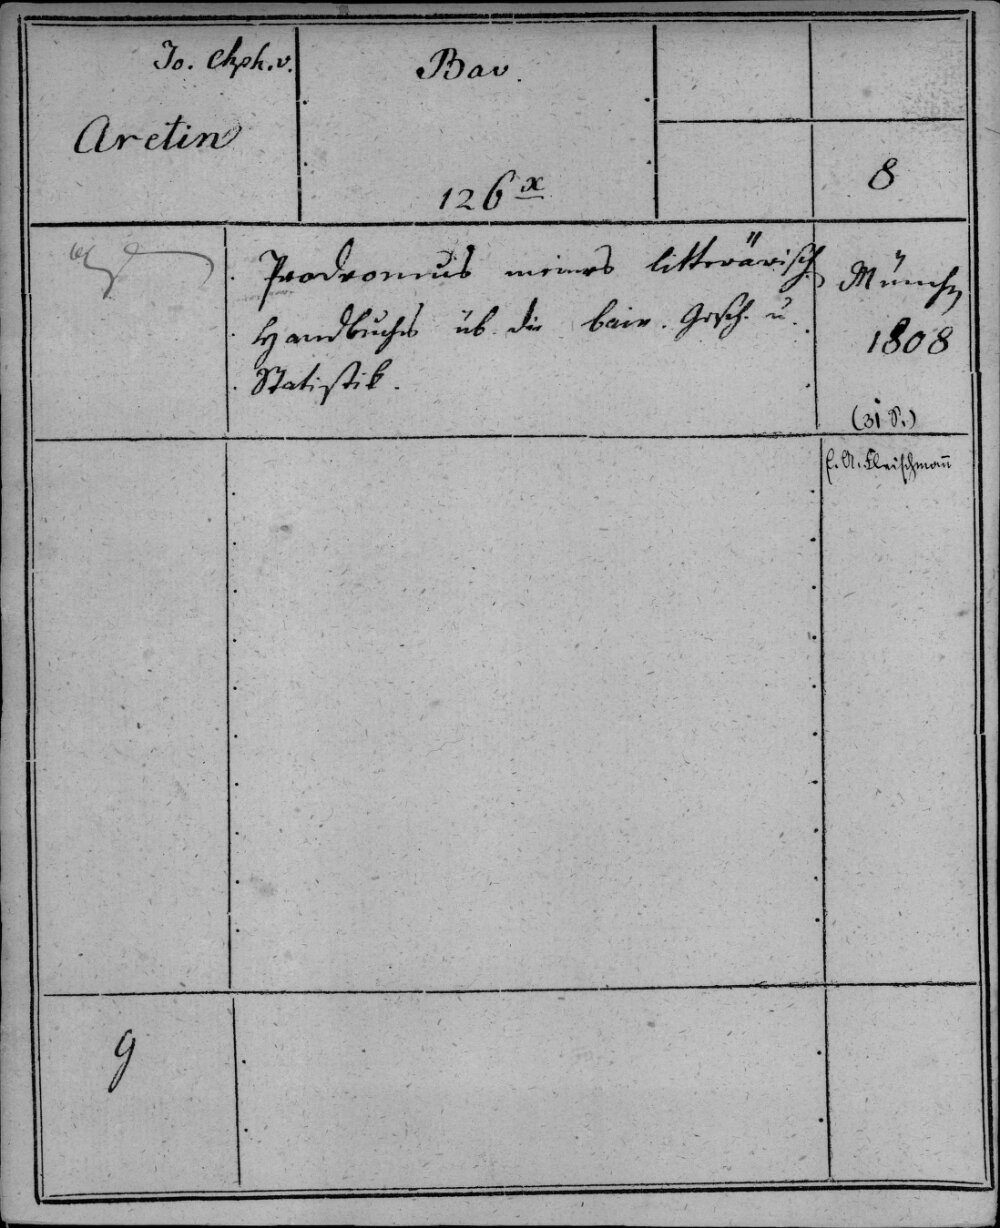 Jo. Chph. v.
Aretin
Bav.
126 x
8
Prodromus meines litterärisch.
Handbuchs üb. die baier. Gesch. u.
Statistik.
Münch.
1808
(31 S.)
E. A. Fleischmañ
g